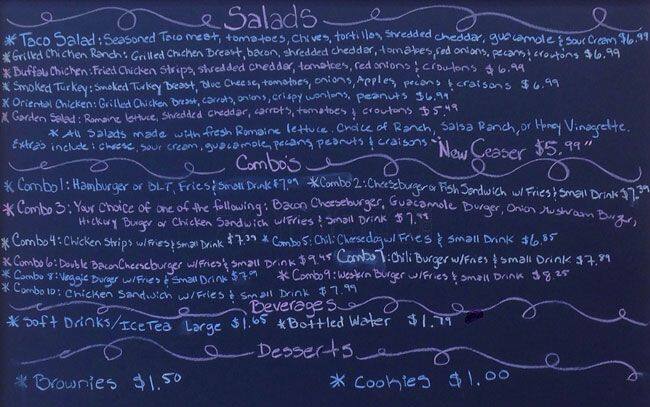 Salads
* Taco Salad: Seasoned Taco meat, tomatoes, Chives, tortillas, shredded cheddar, guacamole & Sour Cream $6.99
* Grilled Chicken Ranch: Grilled Chicken Breast, bacon, shredded cheddar, tomatoes, red onions, pecans & croutons $6.99
* Buffalo Chicken: Fried Chicken Strips, shredded cheddar, tomatoes, red onions & croutons $6.99
* Smoked Turkey: Smoked Turkey Breast, Blue Cheese, tomatoes, onions, Apples, pecans & craisons $6.99
* Oriental Chicken: Grilled Chicken Breast, carrots, onions, crispy wontons, peanuts $6.99
* Garden Salad: Romaine lettuce, shredded cheddar, carrots, tomatoes & croutons $5.49
* All Salads made with fresh Romaine lettuce. Choice of Ranch, Salsa Ranch, or Honey Vinagrette.
Extras include: cheese, sour cream, guacamole, pecans, peanuts & craisons "New Ceaser $5.99"
Combo's
* Combo 1: Hamburger or BLT, Fries & Small Drink $7.09 * Combo 2: Cheeseburger or Fish Sandwich w/Fries & Small Drink $7.39
* Combo 3: Your Choice of one of the following: Bacon Cheeseburger, Guacamole Burger, Onion Mushroom Burger,
Hickory Burger or Chicken Sandwich w/Fries & Small Drink $7.99
* Combo 4: Chicken Strips w/Fries & Small Drink $7.39 * Combo 5: Chili Cheesedog w/Fries & Small Drink $6.85
* Combo 6: Double Bacon Cheeseburger w/Fries & Small Drink $9.45 Combo 7: Chili Burger w/Fries & Small Drink $7.89
* Combo 8: Veggie Burger w/Fries & Small Drink $7.99 * Combo 9: Western Burger w/Fries & Small Drink $8.25
* Combo 10: Chicken Sandwich w/Fries & Small Drink $7.99
Beverages
* Soft Drinks/Ice Tea Large $1.65 * Bottled Water $1.79
Desserts
* Brownies $1.50 * Cookies $1.00